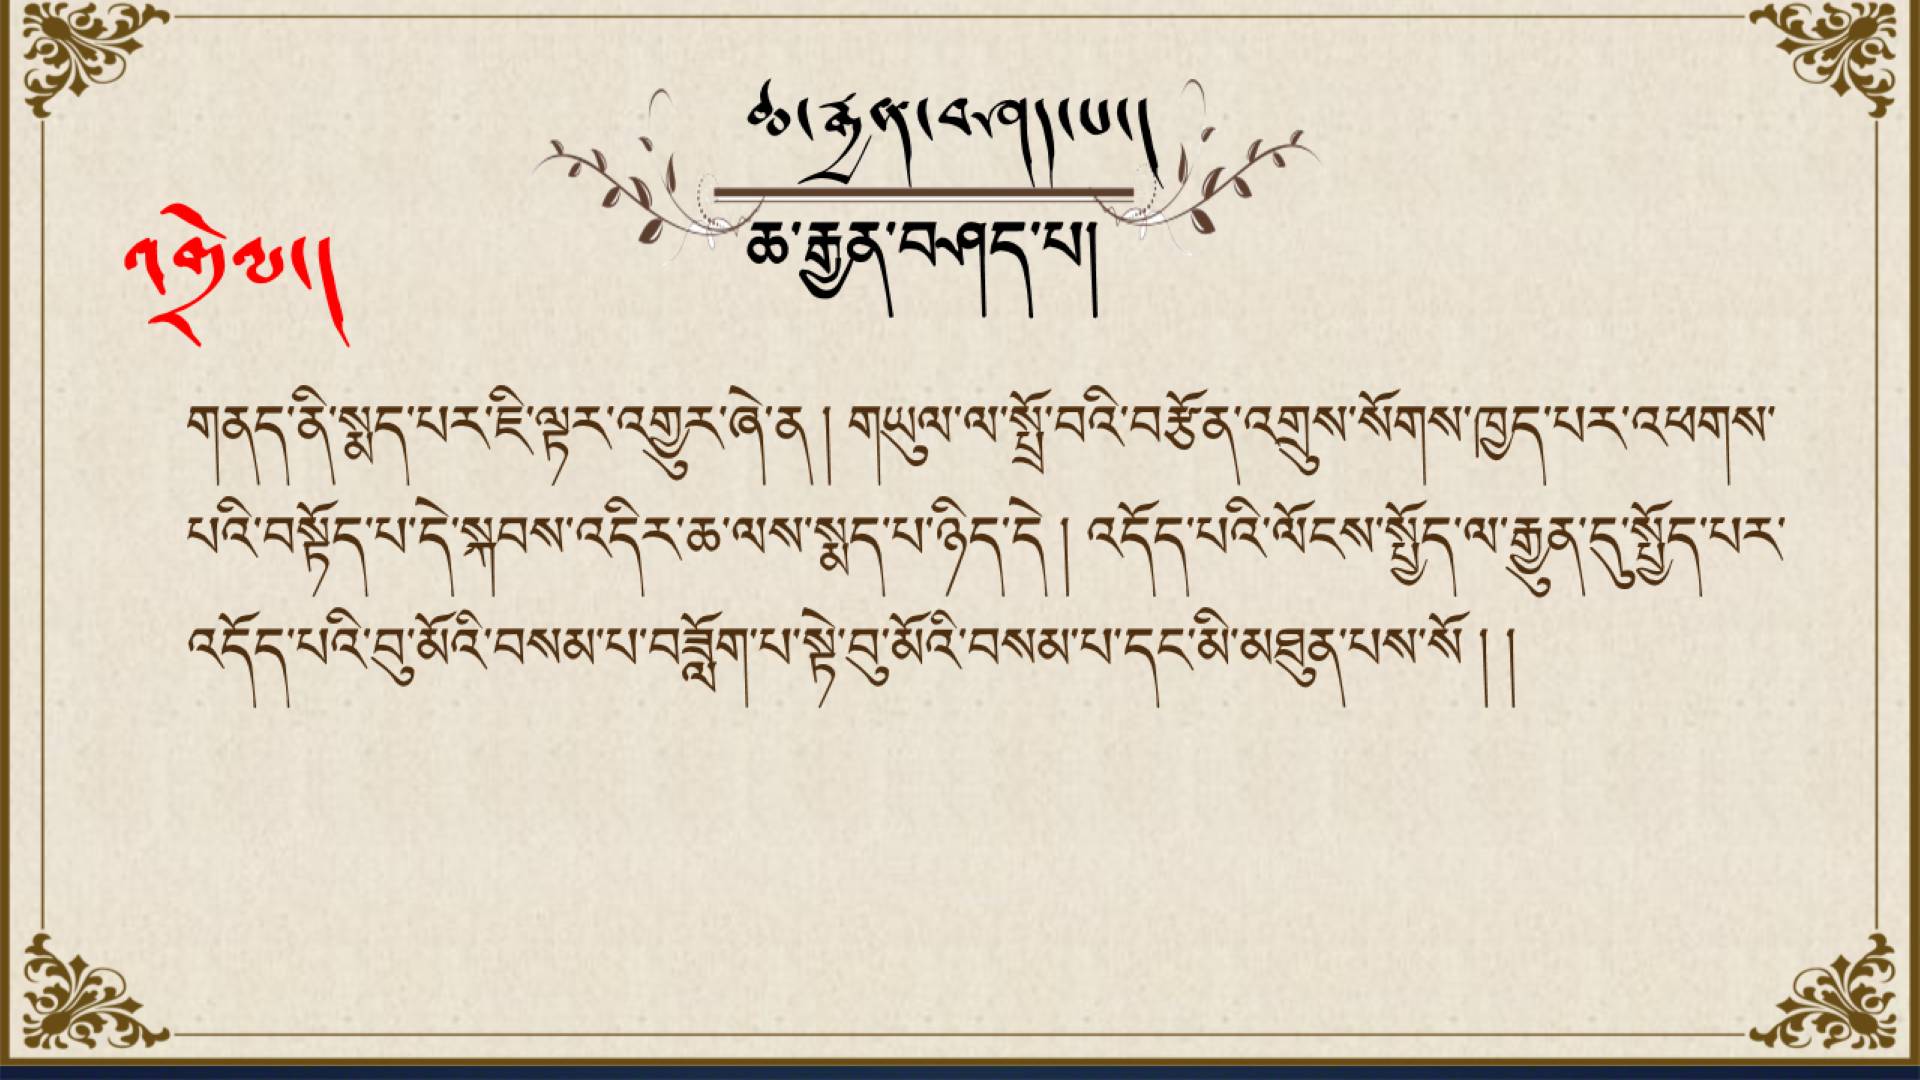 ཆ་རྒྱན་བཤད་པ།
ཆ་རྒྱན་བཤད་པ།
འགྲེལ།
གནད་ནི་སྨད་པར་ཇི་ལྟར་འགྱུར་ཞེ་ན། གཡུལ་ལ་སྤྲོ་བའི་བརྩོན་འགྲུས་སོགས་ཁྱད་པར་འཕགས་
པའི་བསྟོད་པ་དེ་སྐབས་འདིར་ཆ་ལས་སྨད་པ་ཉིད་དེ། འདོད་པའི་ལོངས་སྤྱོད་ལ་རྒྱུན་དུ་སྤྱོད་པར་
འདོད་པའི་བུ་མོའི་བསམ་པ་བཟློག་པ་སྟེ་བུ་མོའི་བསམ་པ་དང་མི་མཐུན་པས་སོ། །